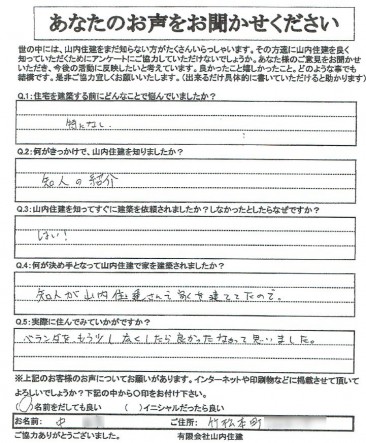 あなたのお声をお聞かせください
世の中には、山内住建をまだ知らない方がたくさんいらっしゃいます。その方達に山内住建を良く
知っていただくためにアンケートにご協力していただけないでしょうか。あなた様のご意見をお聞かせ
いただき、今後の活動に反映したいと考えています。良かったこと嬉しかったこと。どのような事でも
結構です。是非ご協力宜しくお願いいたします。(出来るだけ具体的に書いていただけると助かります)
Q.1:住宅を建築する前にどんなことで悩んでいましたか?
特になし.
Q.2:何がきっかけで、山内住建を知りましたか?
知人の紹介
Q.3:山内住建を知ってすぐに建築を依頼されましたか?しなかったとしたらなぜですか?
はい!
Q.4:何が決め手となって山内住建で家を建築されましたか?
知人が山内住建さんで家を建ててたので。
Q.5:実際に住んでみていかがですか?
ベランダを、もう少し広くしたら良かったなって思いました。
※上記のお客様のお声についてお願いがあります。インターネットや印刷物などに掲載させて頂いて
よろしいでしょうか?下記の中から○印をお付け下さい。
(○)名前をだしても良い ( )イニシャルだったら良い
お名前: 中 ご住所: 竹松本町
ご協力ありがとうございました。 有限会社山内住建